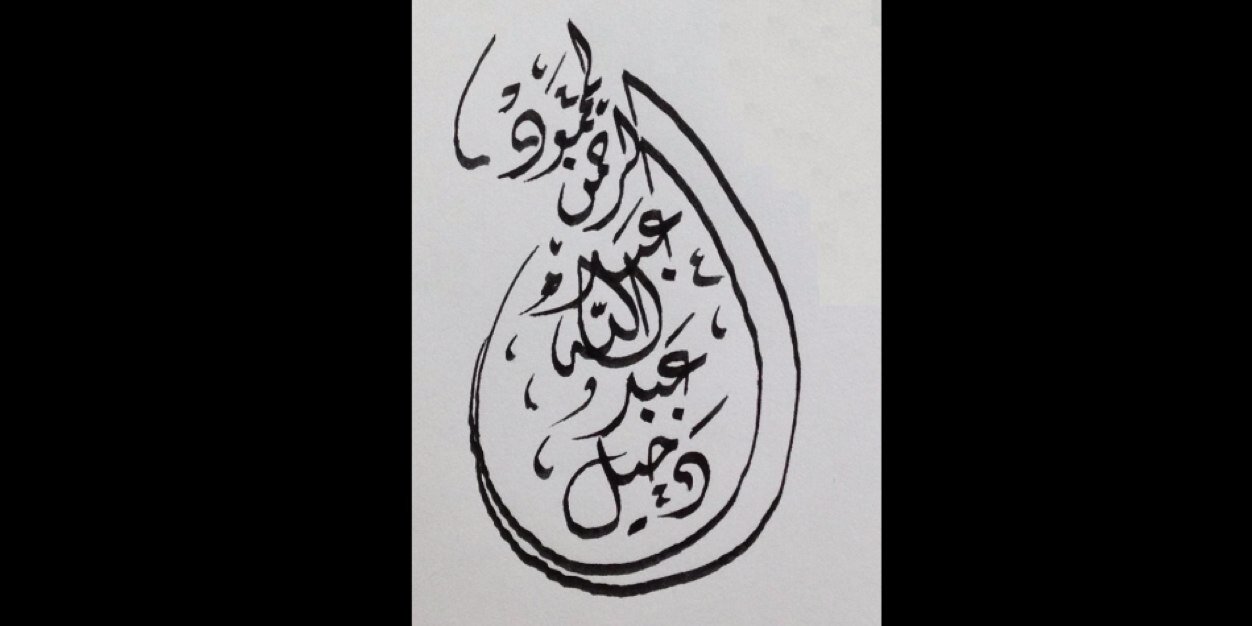 دخيل
عبد
الله
عبد
الرحمن